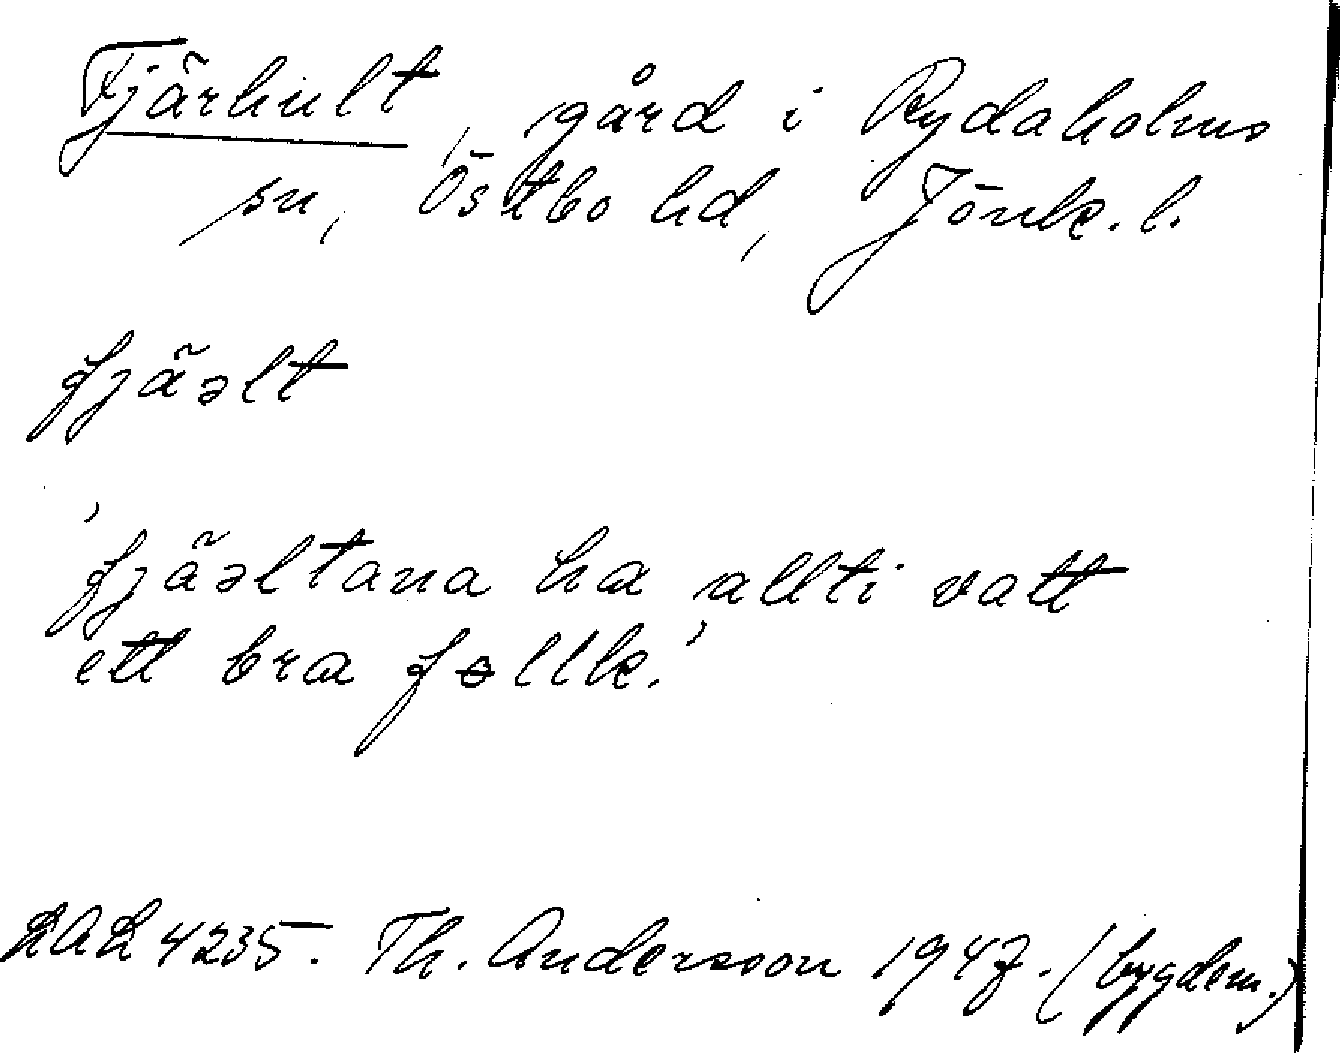 Fjärhult, gård i Rydaholms
sn, Östbo hd, Jönk. l.
fjäəlt
'fjäəltana ha allti vatt
ett bra fɵllk.'
LAL 4235. Th. Andersson 1947. (bygdem.)